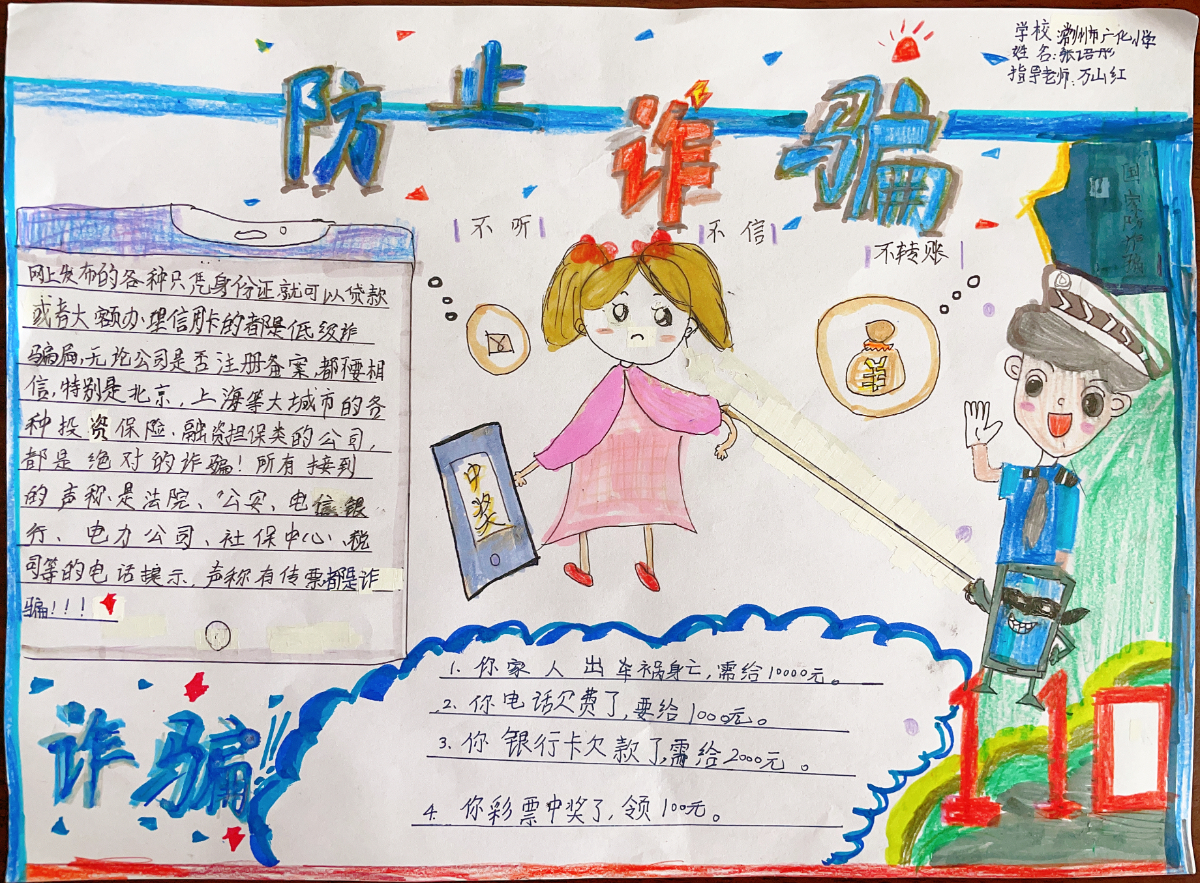 学校:常州市广化小学
姓名:张语彤
指导老师:万山红
防止诈骗
不听
不信
不转账
网上发布的各种只凭身份证就可以贷款
或者大额办理信用卡的都是低级诈
骗局,无论公司是否注册备案,都不要相
信,特别是北京,上海等大城市的各
种投资保险、融资担保类的公司,
都是绝对的诈骗!所有接到
的声称是法院、公安、电信银
行、电力公司、社保中心、税
司等的电话提示,声称有传票都是诈
骗!!!
中奖
¥
诈骗!!
1. 你家人出车祸身亡,需给10000元。
2. 你电话欠费了,要给1000元。
3. 你银行卡欠款了,需给2000元。
4. 你彩票中奖了,领100元。
110